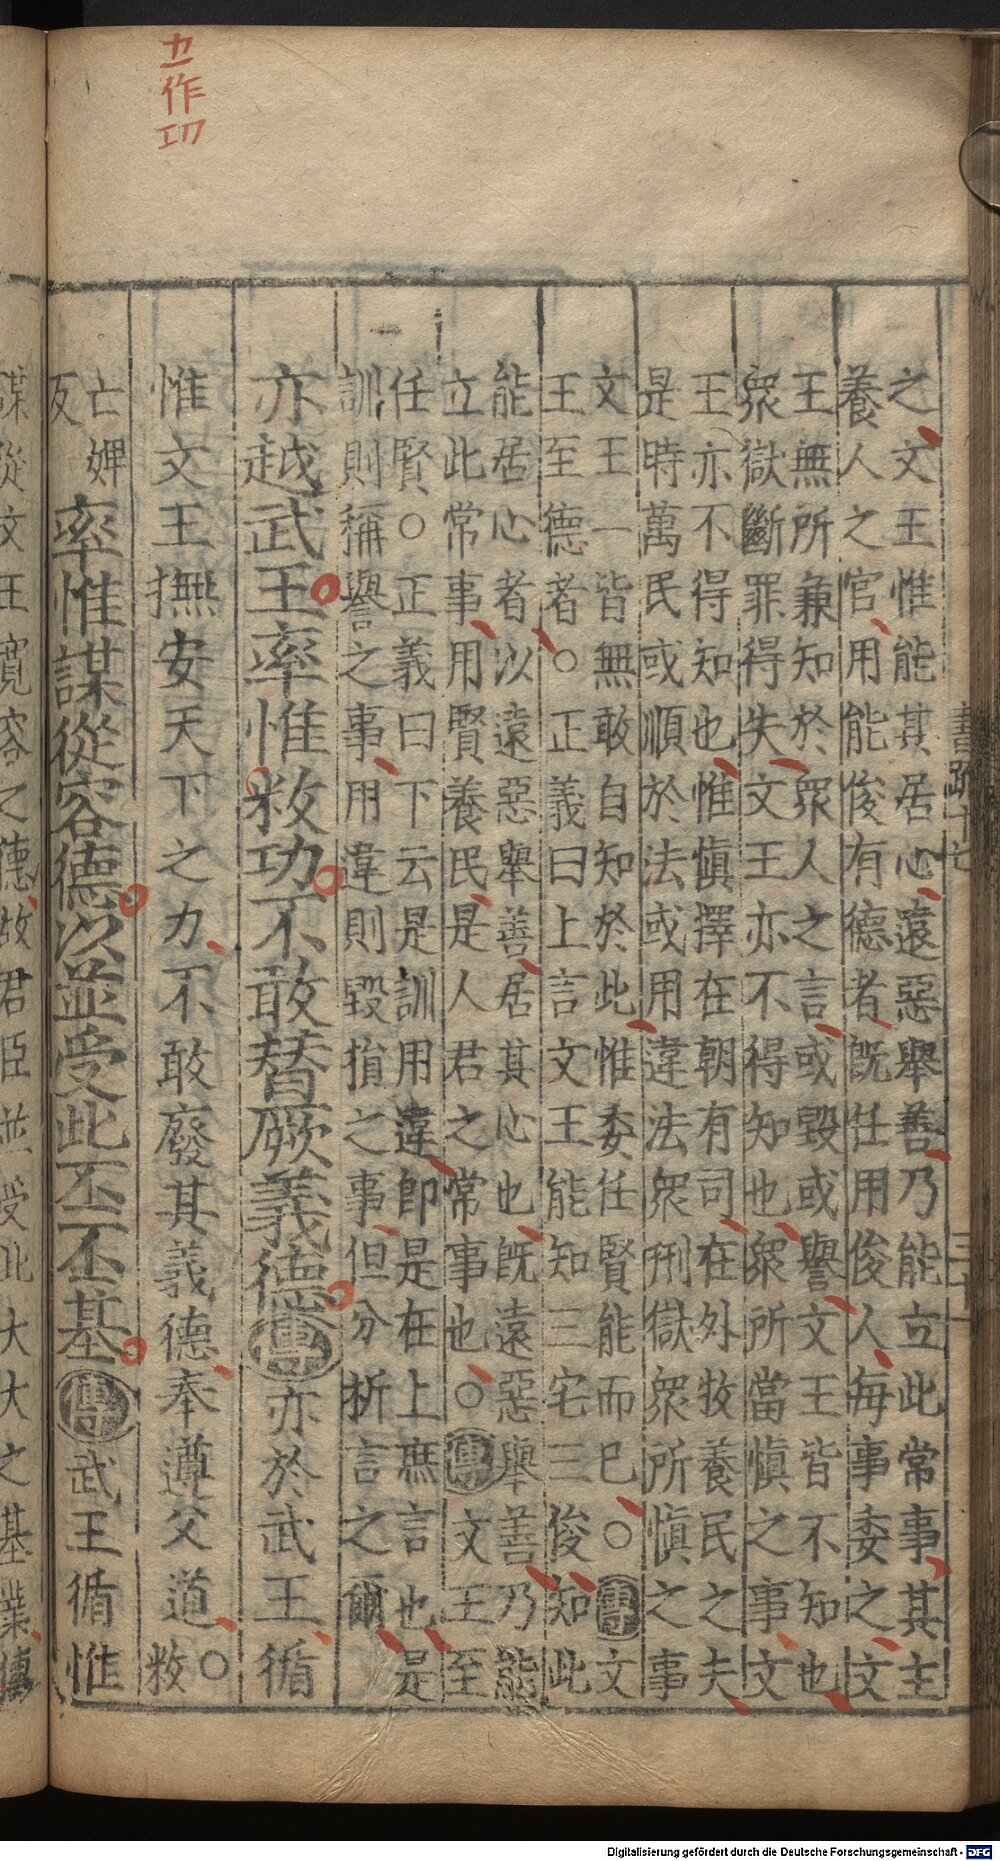 力作功
之文王惟能其居心遠惡舉善乃能立此常事其主
養人之官用能俊有德者既任用俊人每事委之文
王無所兼知於眾人之言或毀或譽文王皆不知也
眾獄斷罪得失文王亦不得知也眾所當慎之事文
王亦不得知也惟慎擇在朝有司在外牧養民之夫
是時萬民或順於法或用違法眾刑獄眾所慎之事
文王一皆無敢自知於此惟委任賢能而已○傳文
王至德者○正義曰上言文王能知三宅三俊知此
能居心者以遠惡舉善居其心也既遠惡舉善乃能
立此常事用賢養民是人君之常事也○傳文王至
任賢○正義曰下云是訓用違即是在上庶言也是
訓則稱譽之事用違則毀損之事但分析言之爾
亦越武王率惟敉功不敢替厥義德傳亦於武王循
惟文王撫安天下之力不敢廢其義德奉遵父道○敉
亡婢
反
率惟謀從容德以並受此丕丕基傳武王循惟
謀從文王寬容之德故君臣並受此大大之基業傳
書疏十七
三十
Digitalisierung gefördert durch die Deutsche Forschungsgemeinschaft - DFG